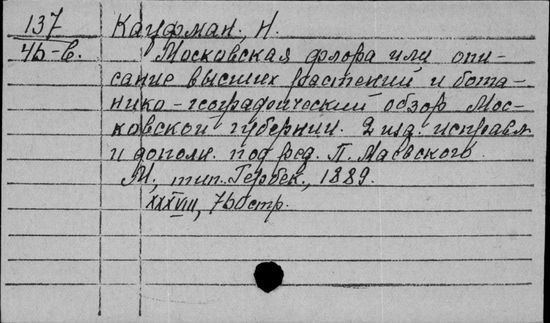 137 Кауфман, Н.
46-в. Московская флора или опи-
сание высших растений и бота-
нико-географический обзор Мос-
ковской губернии. 2 изд. исправл
и дополн. под ред. П. Маевского.
М., тип. Гербек., 1889.
XXXVIII, 760 стр.